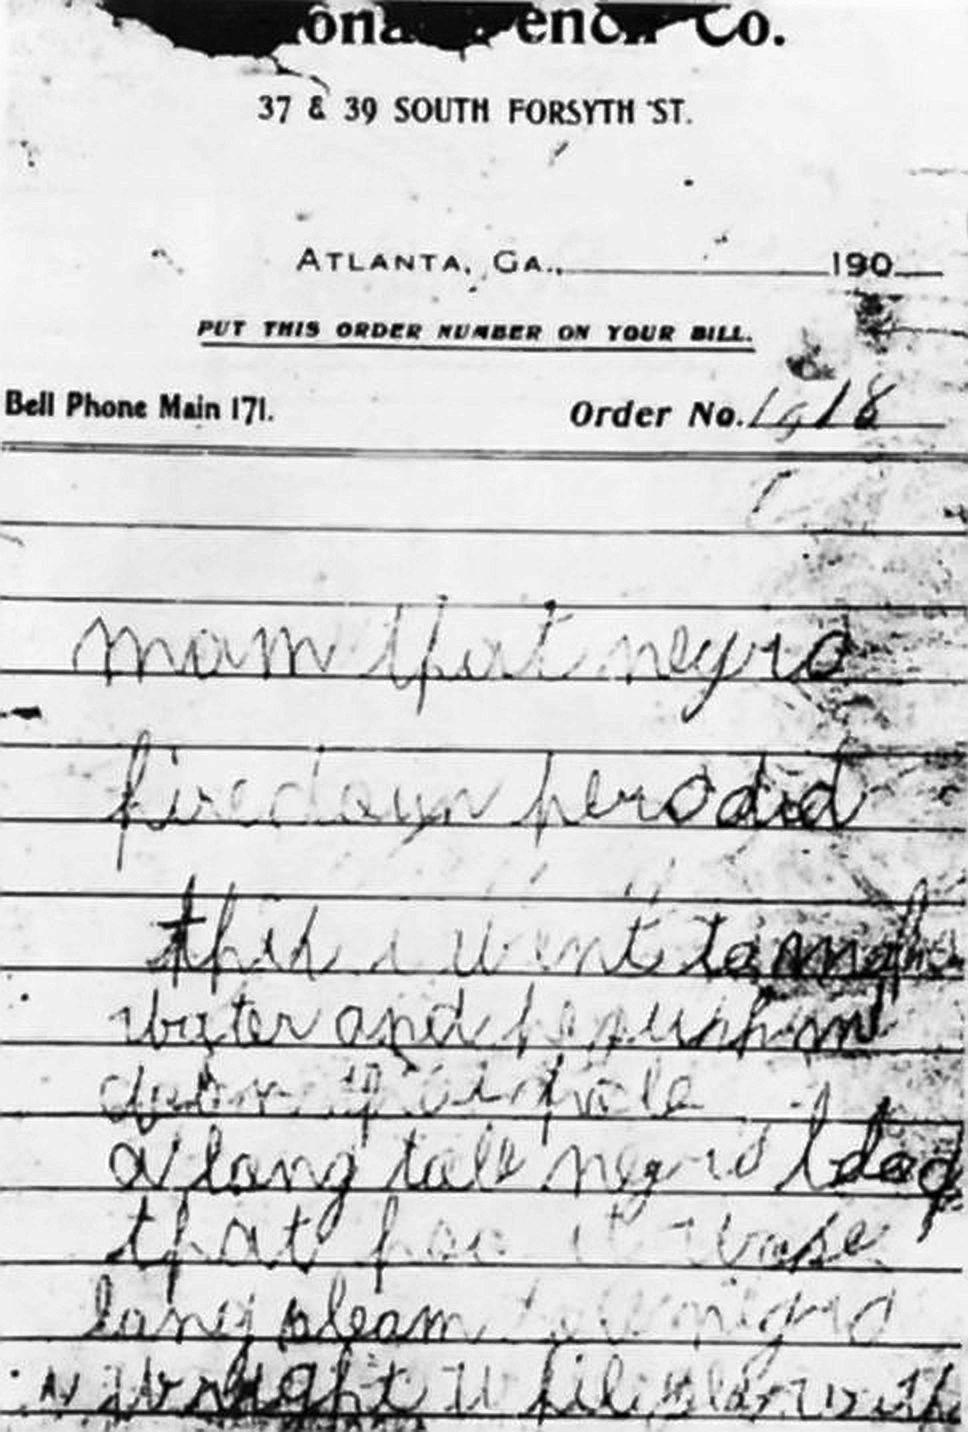 Co.
37 & 39 SOUTH FORSYTH ST.
ATLANTA, GA., 190
PUT THIS ORDER NUMBER ON YOUR BILL.
Bell Phone Main 171.
Order No. 1018
mam that negro
hire doun here did
this i went to make
water and he push me
doun that hole
a long tall negro black
that hoo it wase
long sleam tall negro
i wright while play with